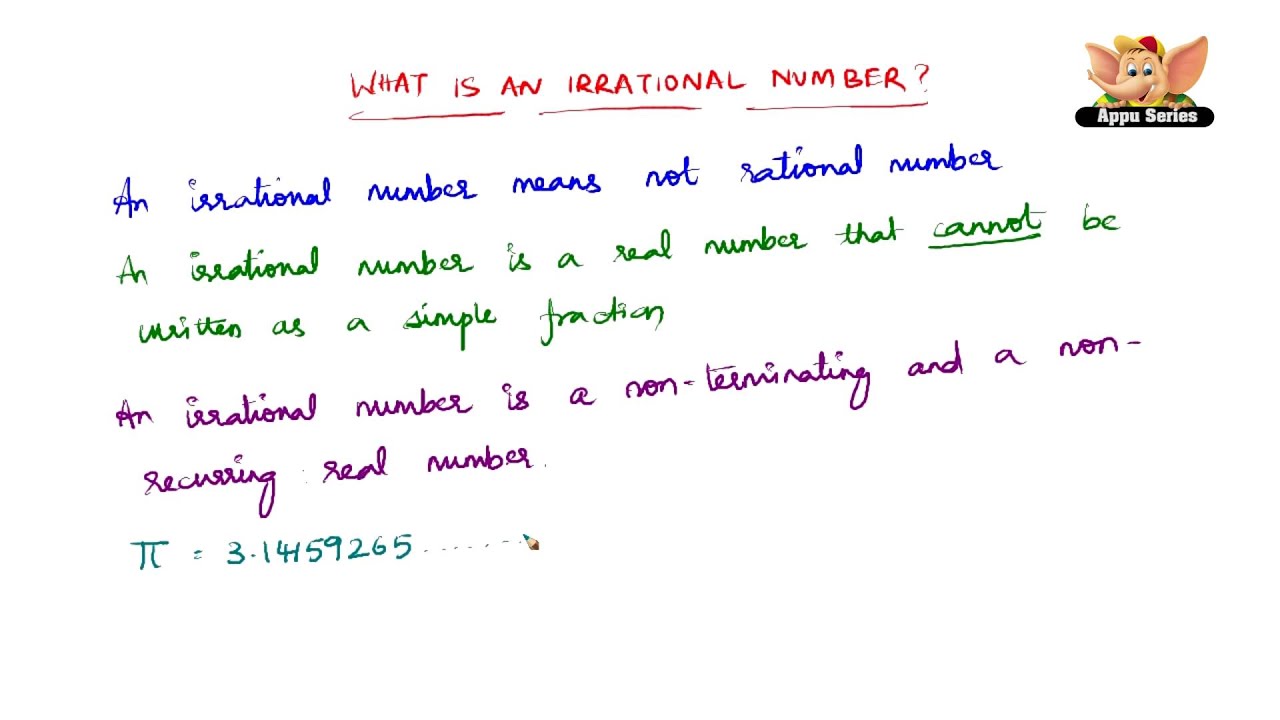 WHAT IS AN IRRATIONAL NUMBER?
Appu Series
An irrational number means not rational number
An irrational number is a real number that cannot be
written as a simple fraction
An irrational number is a non-terminating and a non-
recurring real number.
π = 3.14159265.......